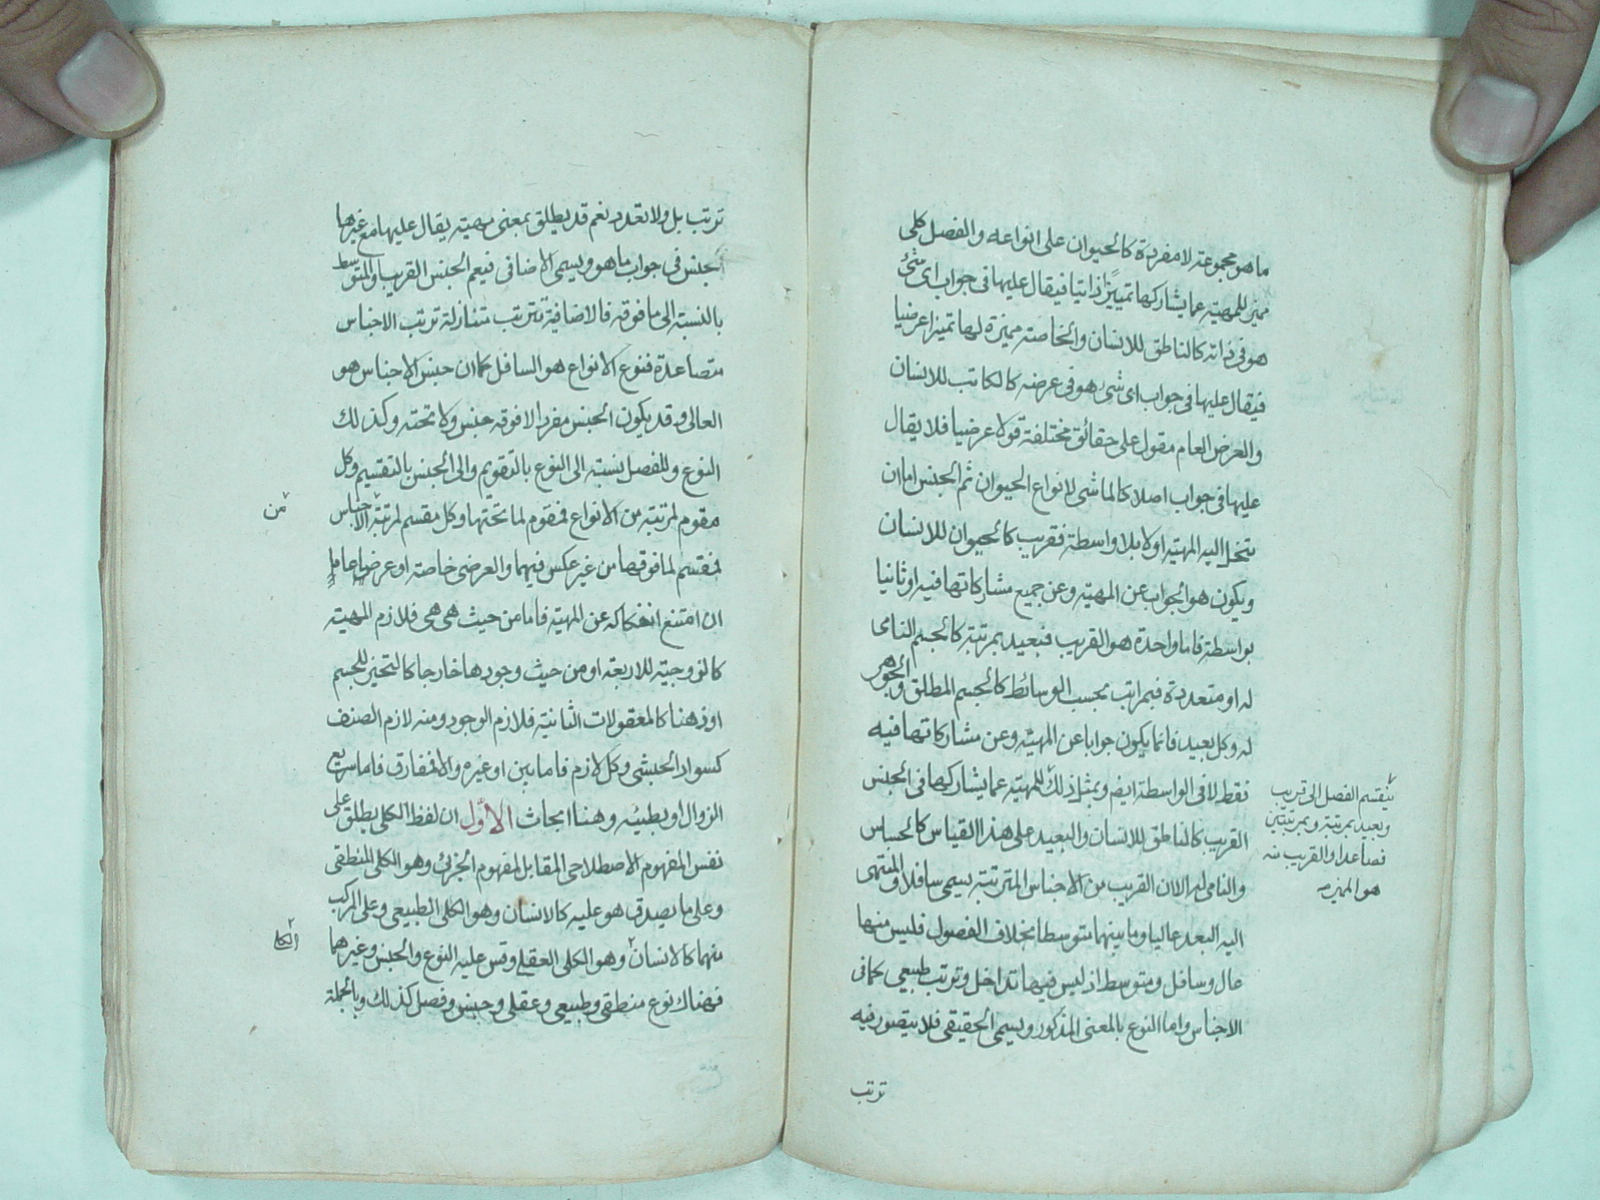 ما هو مجموعة لا مفردة كالحيوان على انواعه والفصل كلى
مميز للمهية عما يشاركها تمييزا ذاتيا فيقال عليها فى جواب اى شئ
هو فى ذاته كالناطق للانسان والخاصة مميزة لها تميزا عرضيا
فيقال عليها فى جواب اى شئ هو فى عرضه كالكاتب للانسان
والعرض العام مقول على حقائق مختلفة قولا عرضيا فلا يقال
عليها فى جواب اصلا كالماشى لانواع الحيوان ثم الجنس اما ان
تنحل اليه المهية اولا بلا واسطة فقريب كالحيوان للانسان
ويكون هو الجواب عن المهية وعن جميع مشاركاتها فيه او ثانيا
بواسطة فاما واحدة هو القريب فبعيد بمرتبة كالجسم النامى
له او متعددة فبمراتب بحسب الوسائط كالجسم المطلق والجوهر
له وكل بعيد فانما يكون جوابا عن المهية وعن مشاركاتها فيه
فقط لا فى الواسطة ايضم وبمثل ذلك للمهية عما يشاركها فى الجنس
القريب كالناطق للانسان والبعيد على هذا القياس كالحساس
والنامى له الا ان القريب من الاجناس المترتبة يسمى سافلا والمنتهى
اليه البعد عاليا وما بينهما متوسطا بخلاف الفصول فليس منها
عال وسافل ومتوسط اذ ليس فيها تداخل وترتب طبيعى كما فى
الاجناس واما النوع بالمعنى المذكور ويسمى الحقيقى فلا يتصور فيه
ترتب
ينقسم الفصل الى قريب
وبعيد بمرتبة وبمرتبتين
فصاعدا والقريب منه
هو المميز
ترتب بل ولا تعدد نعم قد يطلق بمعنى مهية يقال عليها مع غيرها
الجنس فى جواب ما هو ويسمى الاضافى فيعم الجنس القريب والمتوسط
بالنسبة الى ما فوقه فالاضافية تترتب متنازلة ترتب الاجناس
متصاعدة فنوع الانواع هو السافل كما ان جنس الاجناس هو
العالى وقد يكون الجنس مفردا لا فوقه جنس ولا تحته وكذلك
النوع وللفصل نسبة الى النوع بالتقويم والى الجنس بالتقسيم وكل
مقوم لمرتبة من الانواع فمقوم لما تحتها وكل مقسم لمرتبة الاجناس
فمقسم لما فوقها من غير عكس فيهما والعرضى خاصة او عرضيا عاما
ان امتنع انفكاكه عن المهية فاما من حيث هى هى فلازم المهية
كالزوجية للاربعة او من حيث وجودها خارجا كالتحيز للجسم
او ذهنا كالمعقولات الثانية فلازم الوجود ومنه لازم الصنف
كسواد الحبشى وكل لازم فاما بين او غيره والا فمفارق فاما سريع
الزوال او بطيئه وهنا ابحاث الاول ان لفظ الكلى يطلق على
نفس المفهوم الاصطلاحى المقابل لمفهوم الجزئى وهو الكلى المنطقى
وعلى ما يصدق هو عليه كالانسان وهو الكلى الطبيعى وعلى المركب
منهما كالانسان وهو الكلى العقلى وقس عليه النوع والجنس وغيرهما
فهناك نوع منطقى وطبيعى وعقلى وجنس وفصل كذلك وبالجملة
من
الكلى